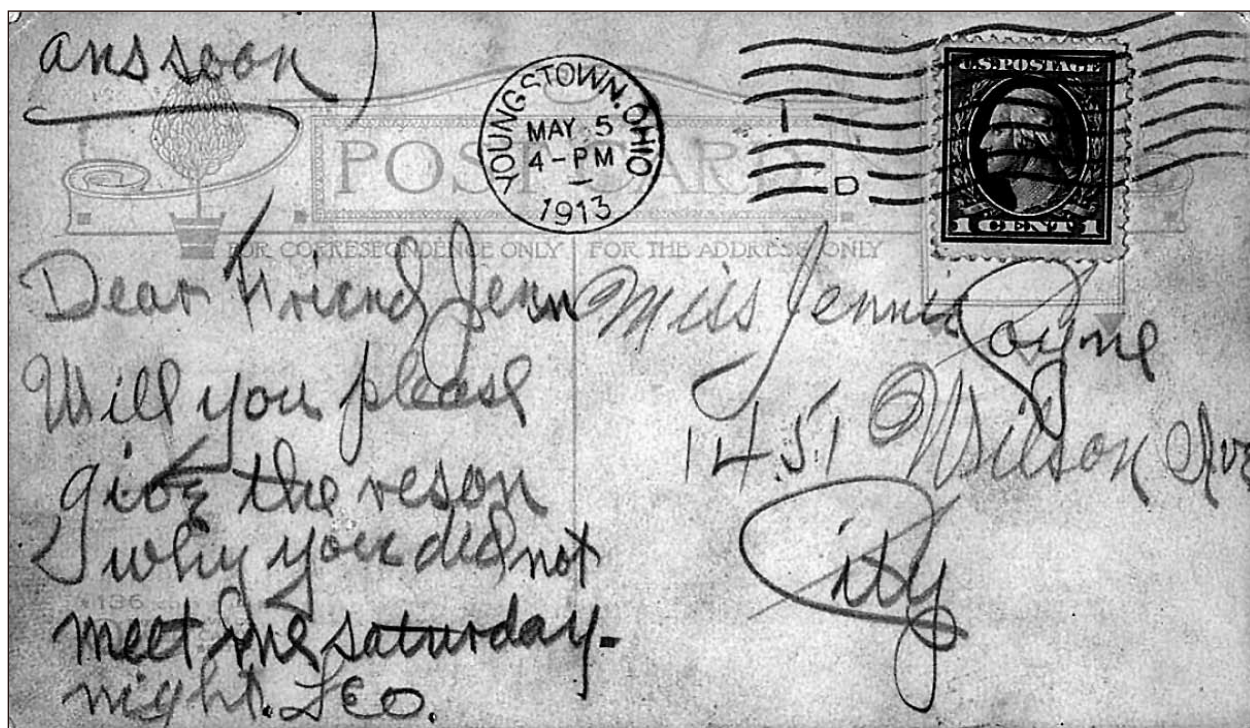 ans soon
YOUNGSTOWN, OHIO
MAY 5
4-PM
1913
1
D
U.S. POSTAGE
1 CENT 1
POST CARD
FOR CORRESPONDENCE ONLY
FOR THE ADDRESS ONLY
Dear Friend Jenn
Will you please
give the reson
why you did not
meet me saturday-
night. LEO.
4136
Miss Jennie Coyne
1451 Wilson Ave
City